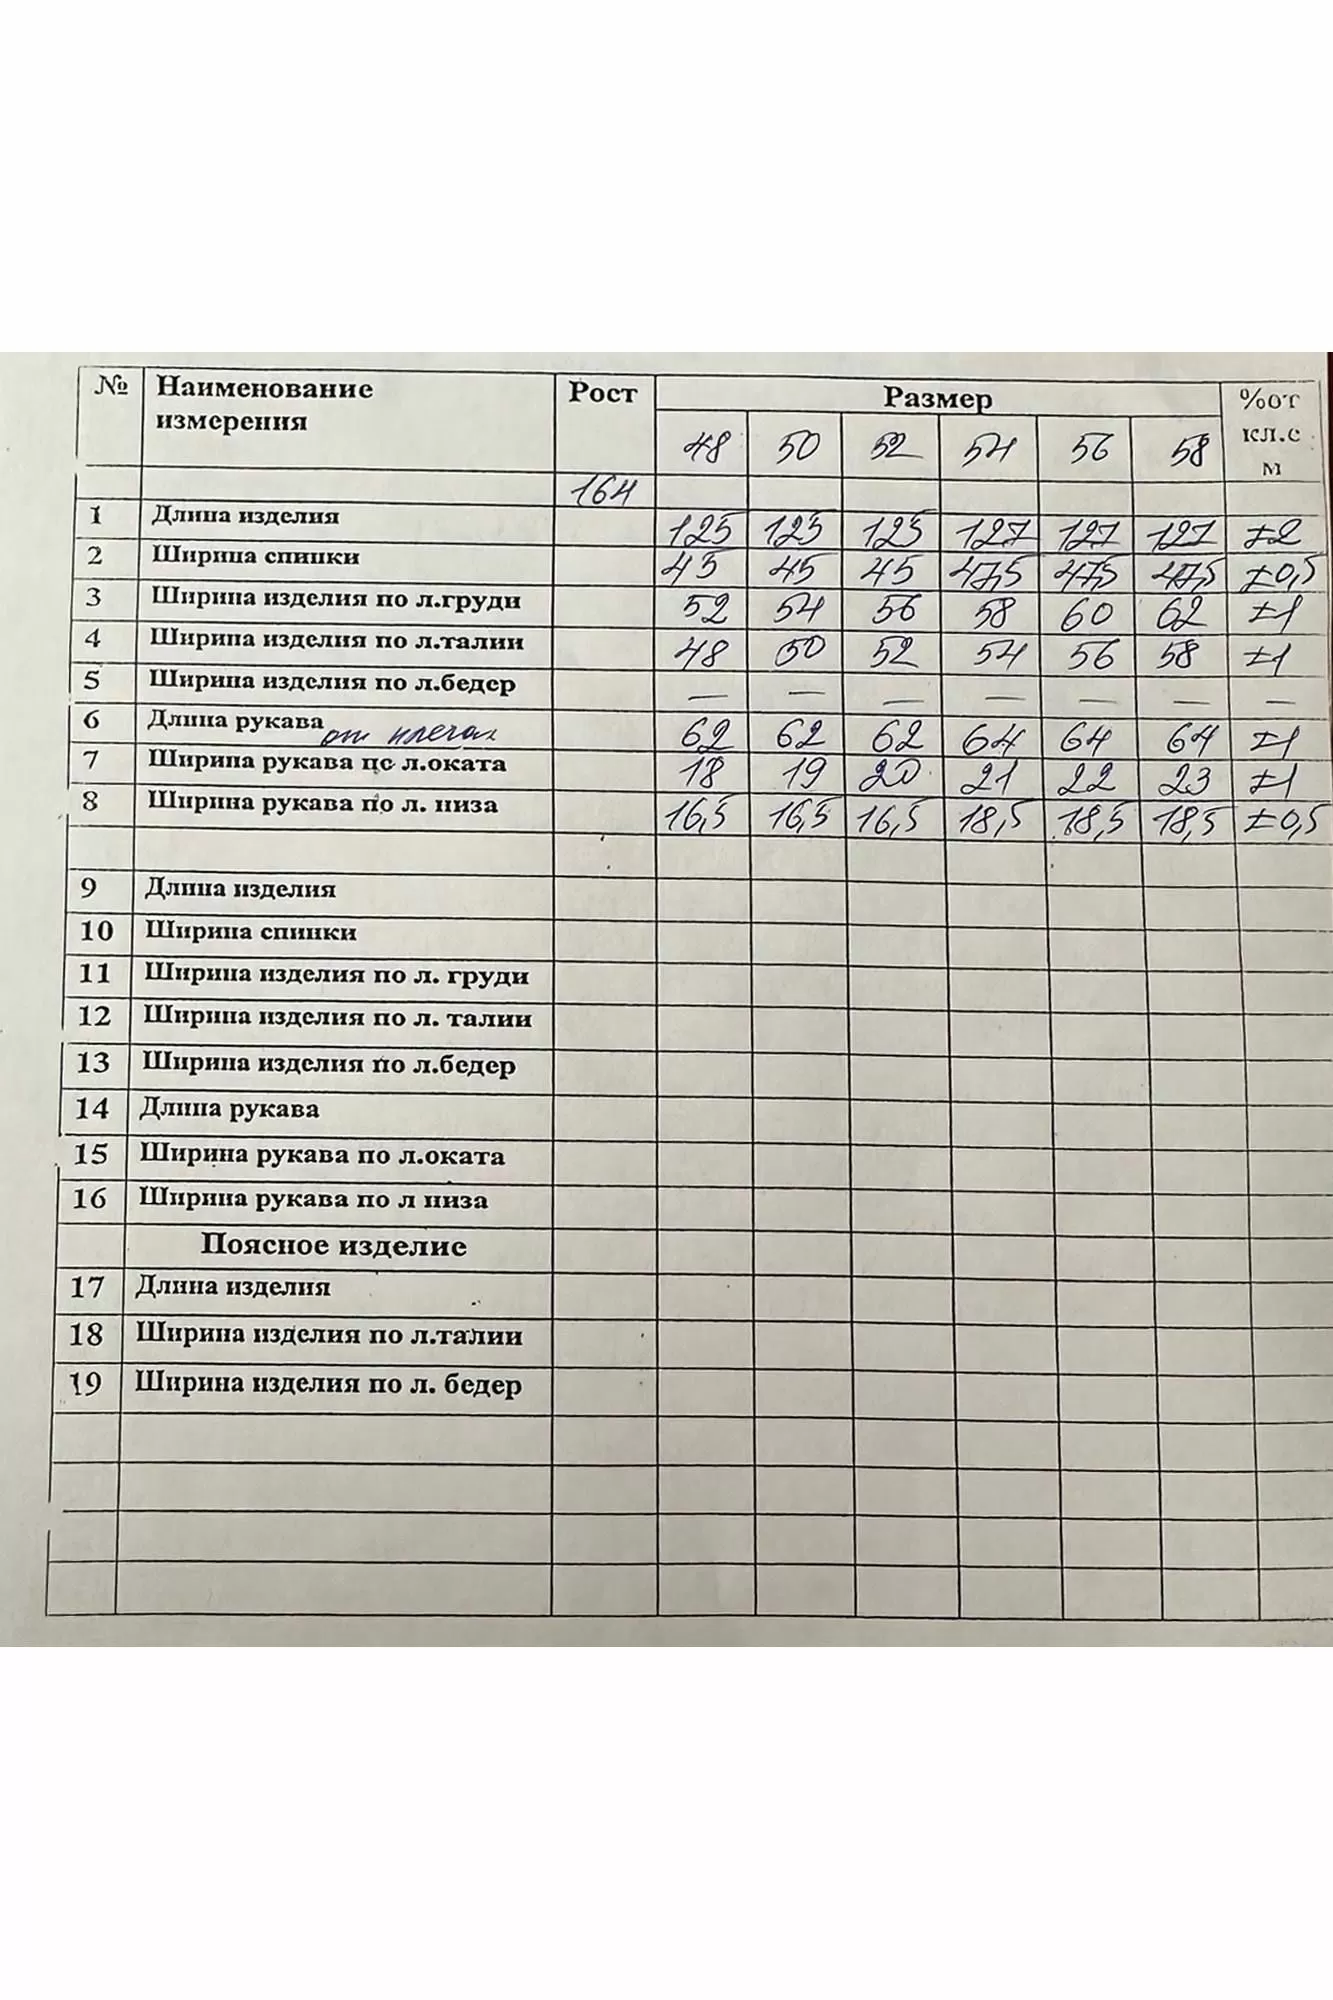 № Наименование измерения Рост Размер %от кл.с м
48 50 52 54 56 58
164
1 Длина изделия 125 125 125 127 127 127 ±2
2 Ширина спинки 45 45 45 47,5 47,5 47,5 ±0,5
3 Ширина изделия по л.груди 52 54 56 58 60 62 ±1
4 Ширина изделия по л.талии 48 50 52 54 56 58 ±1
5 Ширина изделия по л.бедер — — — — — — —
6 Длина рукава от плеча 62 62 62 64 64 64 ±1
7 Ширина рукава по л.оката 18 19 20 21 22 23 ±1
8 Ширина рукава по л. низа 16,5 16,5 16,5 18,5 18,5 18,5 ±0,5
9 Длина изделия
10 Ширина спинки
11 Ширина изделия по л. груди
12 Ширина изделия по л. талии
13 Ширина изделия по л.бедер
14 Длина рукава
15 Ширина рукава по л.оката
16 Ширина рукава по л низа
Поясное изделие
17 Длина изделия
18 Ширина изделия по л.талии
19 Ширина изделия по л. бедер